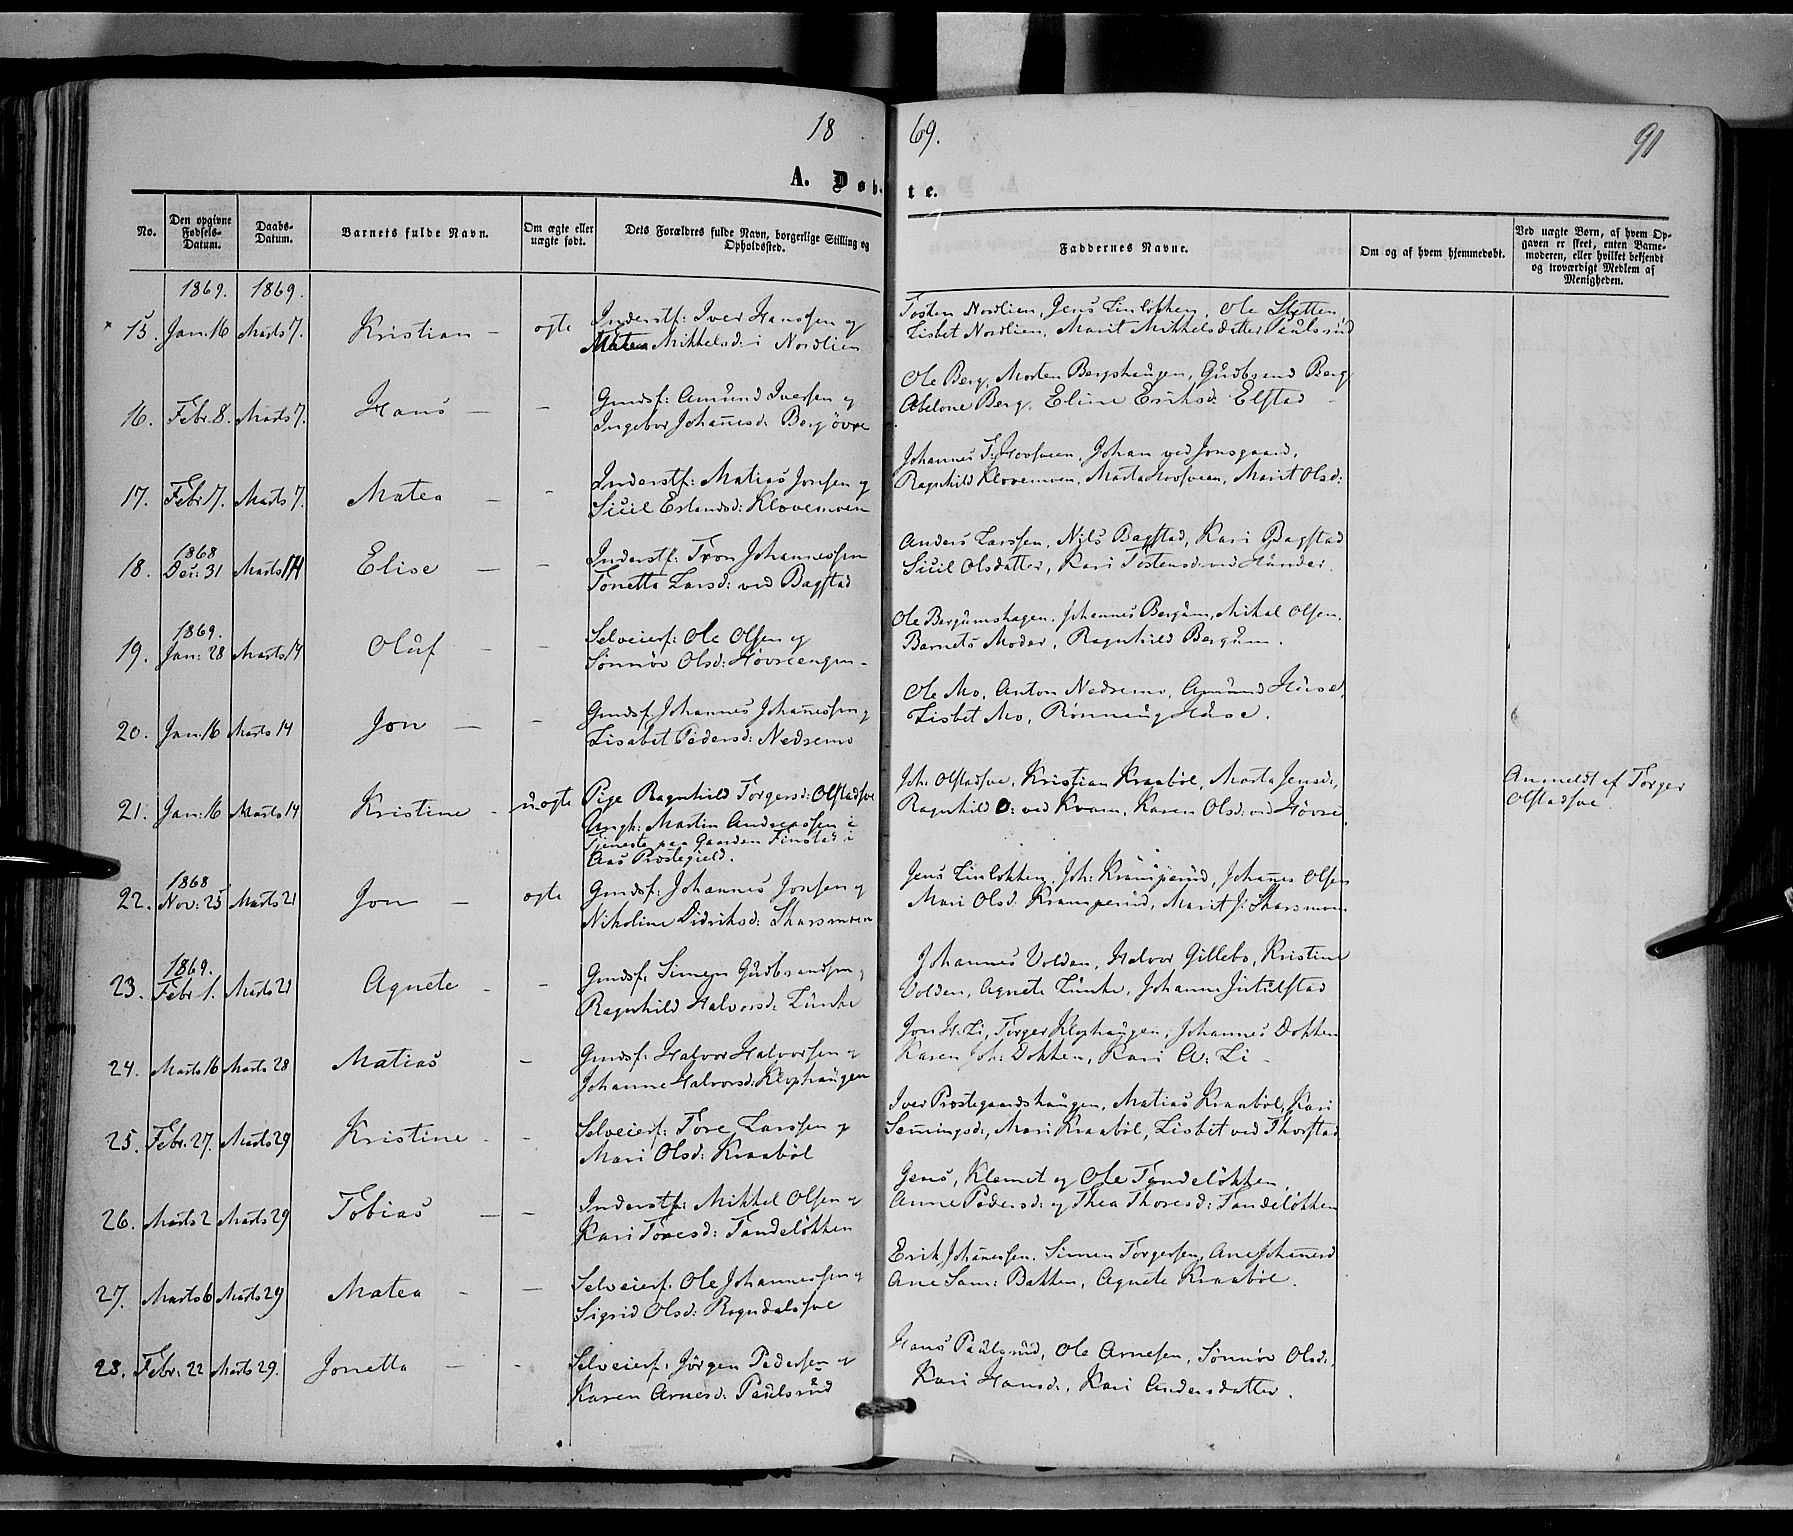 18 69.
91
A. Døbte.
No.
Den opgivne Fødsels-Datum.
Daabs-Datum.
Barnets fulde Navn.
Om ægte eller uægte født.
Dets Forældres fulde Navn, borgerlige Stilling og Opholdssted.
Faddernes Navne.
Om og af hvem hjemmedøbt.
Ved uægte Børn, af hvem Opgaven er skeet, enten Barnemoderen, eller hvilket bekjendt og troværdigt Medlem af Menigheden.
1869. 1869.
15. Jan: 16 Marts 7. Kristian - ægte Inderstf: Iver Hanssen og
Matea Mikkelsd: i Nordlien
Tosten Nordlien, Jens Linløkken, Ole Sletten,
Lisbet Nordlien, Marit Mikkelsdatter Paulsrud
16. Febr: 8. Marts 7. Hans - - Gmdsf: Amund Iversen og
Ingebor Johannesd: Berg øvre
Ole Berg, Morten Bergshaugen, Gudbrand Berg
Abelone Berg, Eline Eriksd: Elstad -
17. Febr: 7. Marts 7. Matea - - Inderstf: Matias Jonsen og
Sicil Erlandsd: Klovemoen
Johannes T: Hovsveen, Johan ved Jonsgaard,
Ragnhild Klovemoen, Marta Hovsveen, Marit Olsd:
1868
18. Dec: 31 Marts 14 Elise - - Inderstf: Tron Johannessen
Tonetta Larsd: ved Bagstad
Anders Larssen, Nils Bagstad, Kari Bagstad
Sicil Olsdatter, Kari Tostensd: ved Hunder.
1869.
19. Jan: 28 Marts 14 Oluf - - Selveierf: Ole Olsen og
Sønnøv Olsd: Høvreengen -
Ole Bergumshagen, Johannes Bergum, Mikal Olsen,
Barnets Moder, Ragnhild Bergum.
20. Jan: 16 Marts 14 Jon - - Gmdsf: Johannes Johannessen og
Lisabet Pedersd: Nedremo
Ole Mo, Anton Nedremo, Amund Huse,
Lisbet Mo, Rønnaug Huse.
21. Jan: 16 Marts 14 Kristine - uægte Pige Ragnhild Torgersd: Olstadsve
Ungk: Martin Andreassen i
Tjeneste paa Gaarden Finstad i
Aas Præstegjeld.
Joh: Olstadsve, Kristian Kraabøl, Marta Jensd:,
Ragnhild O: ved Kvam, Karen Olsd: ved Høvre.
Anmeldt af Torger
Olstadsve
1868
22. Nov: 25 Marts 21 Jon - ægte Gmdsf: Johannes Jonsen og
Nikoline Didriksd: Skarsmoen
Jens Linløkken, Joh: Kramperud, Johannes Olsen
Mari Olsd: Kramperud, Marit J: Skarsmoen
1869.
23. Febr: 1. Marts 21 Agnete - - Gmdsf: Simen Gudbrandsen og
Ragnhild Halvorsd: Lunke
Johannes Volden, Halvor Gillebo, Kristine
Volden, Agnete Lunke, Johanne Jutulstad
24. Marts 16 Marts 28 Matias - Gmdsf: Halvor Halvorsen og
Johanne Halvorsd: Klophaugen
Jon H. Li, Torger Klophaugen, Johannes Dokken
Karen Joh: Dokken, Kari A: Li -
25. Febr: 27. Marts 29 Kristine - - Selveierf: Tore Larssen og
Mari Olsd: Kraabøl
Iver Prostegaardshaugen, Matias Kraabøl, Kari
Semingsd:, Mari Kraabøl, Lisbet ved Thorstad
26. Marts 2 Marts 29 Tobias - - Inderstf: Mikkel Olsen og
Kari Toresd: Tandeløkken
Jens, Klemet og Ole Tandeløkken,
Anne Pedersd: og Thea Thoresd: Tandeløkken
27. Marts 6 Marts 29 Matea - - Selveierf: Ole Johannessen og
Sigrid Olsd: Rogndalsve
Erik Johannessen, Simen Torgersen, Ane Johannesd
Ane Sam: Bakken, Agnete Kraabøl.
28. Febr: 22 Marts 29. Jonetta - - Selveierf: Jørgen Pedersen og
Karen Arnesd: Paulsrud
Hans Paulsrud, Ole Arnesen, Sønnøv Olsd:,
Kari Hansd:, Kari Andersdatter.